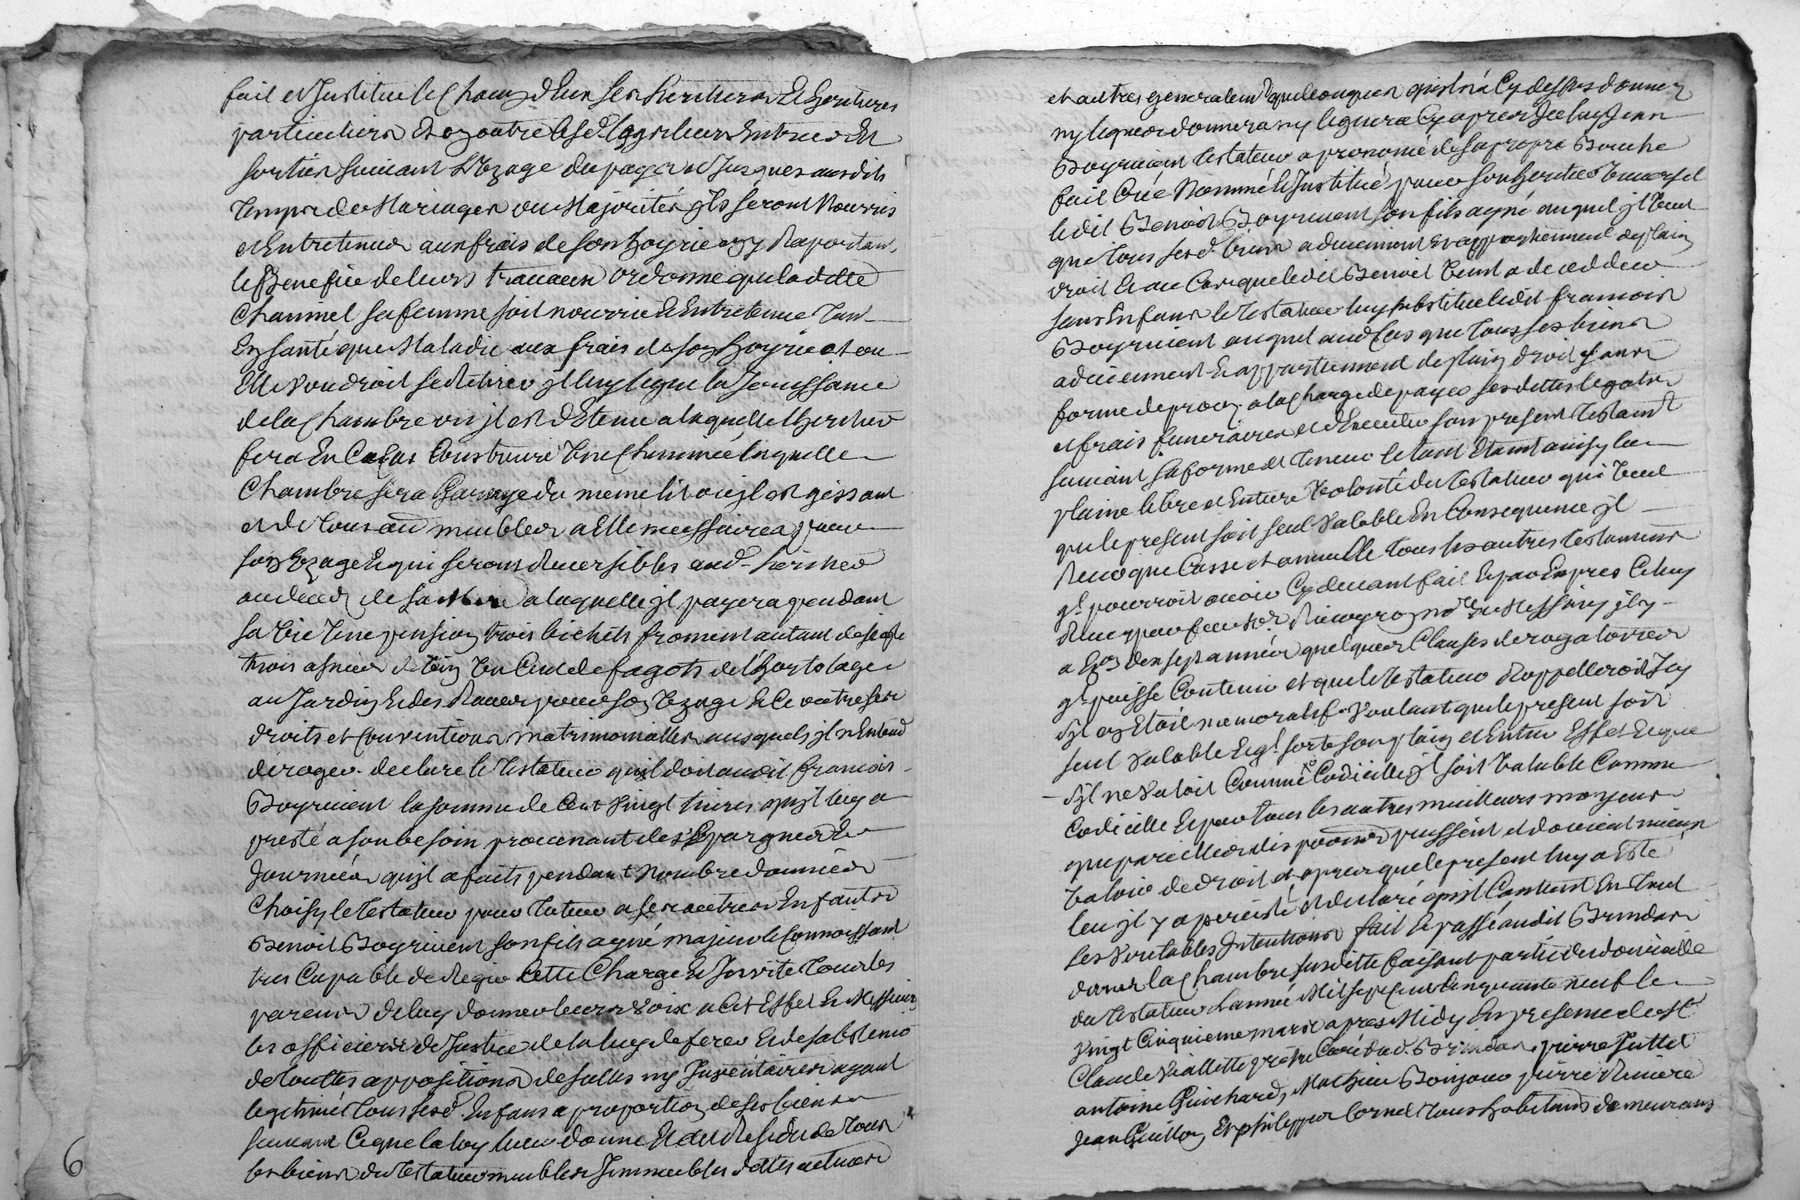 fait et Institue le Chacun d'eux ses heritiers & heritieres
particuliers Et en outre lesd. legs leurs Entrées Et
sorties suivant L'uzage du payis et Jusques ausdits
temps de Mariages ou Majorités ils seront Nourris
et Entretenus aux frais de son hoyrie en y Raportant
le Benefice de leurs travaux ordonne que ladite
Chammel sa femme soit nourrie & Entretenue Tant
En santé que Maladie aux frais de son hoyrie et ou
Elle voudroit se Retirer jl luy legue la Jouissance
de la Chambre ou jl est detenu a laquelle lheritier
fera En ce Cas Construire Une Cheminée laquelle
Chambre sera Garnye du meme lit ou jl est gissant
et de tous au meubles a Elle necessaires pour
son Uzage & qui seront Reversibles aud. heritier
au deced de sa Mere a laquelle jl payera pendant
sa Vie Une pension trois bichets froment autant de segle
trois asnées de Vin Un Cent de fagots de l'hortolage
au Jardin & des Raves pour son Uzage & Ce outre ses
droits et Conventions matrimonialles ausquels jl n'Entend
deroger. declare le Testateur quil doit audit francois
Boyrivent la somme de Cent Vingt livres quil luy a
presté a son besoin provenant des Epargnes de
Journées quil a faits pendant Nombre dannées
Choisy le Testateur pour Tuteur a ses autres Enfants
Benoit Boyrivent son fils ayné majeur le Connoissant
tres Capable de Regir Cette Charge & Invite Tous les
parens de luy donner leurs voix a Cet Effet & Messieurs
les officiers de Justice de la luy deferer & de sabstenir
de touttes appositions de scellés ny Inventaires ayant
legitimé Tous sesd. Enfans a proportion de ses biens
suivant Ce que la loy leur donne & du Residu de Tous
les biens du Testateur meubles Immeubles dettes actives
et autres generalem.t quelconques quil n'a Cy dessus donnez
ny legues donnera ny leguera Cy apres Icelluy Jean
Boyrivent Testateur a pronomé de sa propre Bouche
fait Créé Nommé & Institué pour son heritier Universel
ledit Benoit Boyrivent son fils ayné auquel jl Veut
que Tous sesd. biens adviennent & appartiennent de plain
droit & au Cas que ledit Benoit Vient a deceder
sans Enfans le Testateur luy substitue ledit francois
Boyrivent auquel aud. Cas que Tous ses biens
adviennent & appartiennent de plain droit sans
forme de proces a la charge de payer ses dettes legats
et frais funeraires et d'Executer son present Testam.t
suivant sa forme et Teneur le tout Etant ainsy la
plaine libre et Entiere Volonté du Testateur qui Veut
que le present soit seul Valable En Consequence jl
Revoque Casse et annulle Tous les autres testaments
qu'il pourroit avoir Cy devant fait & par Exprès Celuy
Reçu par feu
a Env. dix sept années quelques Clauses derogatoires
qu'il puisse Contenir et que le Testateur Rappelleroit Icy
s'il en Etoit memoratif. Voulant que le present soit
seul Valable & qu'il sorte son plain et Entier Effet & que
s'il ne Valoit Comme Codicille qu'il soit Valable Comme
Codicille & par tous les autres meilleurs moyens
que pareilles dispositions puissent et doivent mieux
Valoir de droit et apres que le present luy a Esté
leu jl y a persisté et declaré quil Contient En Tout
ses Veritables Intentions fait & passé audit Brindas
dans la Chambre susditte faisant partie du domicille
du Testateur l'année Mil sept Cent Cinquante neuf le
Vingt Cinquieme mars apres Midy En presence de M.e
Claude Viallette prêtre Curé dud. Brindas. pierre Juttet
antoine Guichard, Mathieu Bonjour pierre Riviere
Jean Guillon & philippe Cornet Tous habitants demeurans
6